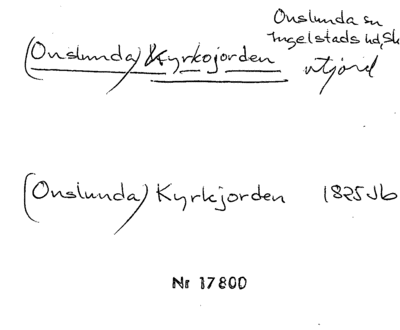 Onslunda sn
Ingelstads hd, Sk
(Onslunda) Kyrkojorden utjord
(Onslunda) Kyrkjorden 1825 Jb
Nr 17800